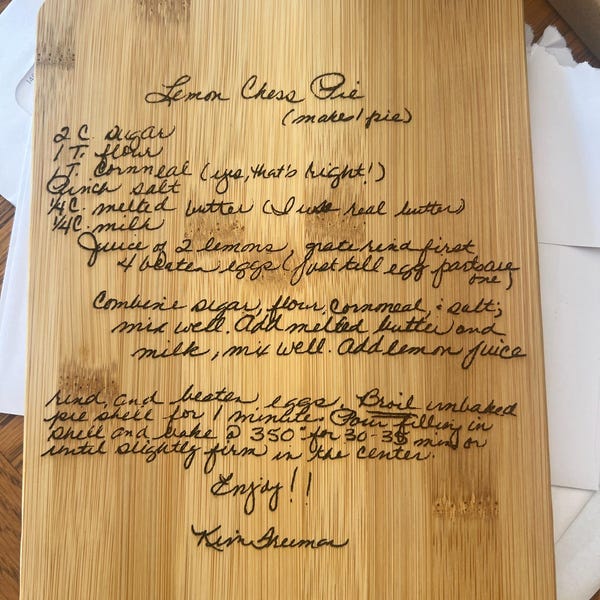 Lemon Chess Pie
(makes 1 pie)
2 C. sugar
1 T. flour
1 T. cornmeal (yes, that's right!)
Pinch salt
1/4 C. melted butter (I use real butter)
1/4 C. milk
Juice of 2 lemons, grate rind first
4 beaten eggs (just till egg parts are
one)
Combine sugar, flour, cornmeal, & salt;
mix well. Add melted butter and
milk, mix well. Add lemon juice
rind, and beaten eggs. Broil unbaked
pie shell for 1 minute. Pour filling in
shell and bake @ 350° for 30-35 min or
until slightly firm in the center.
Enjoy!!
Kim Freeman